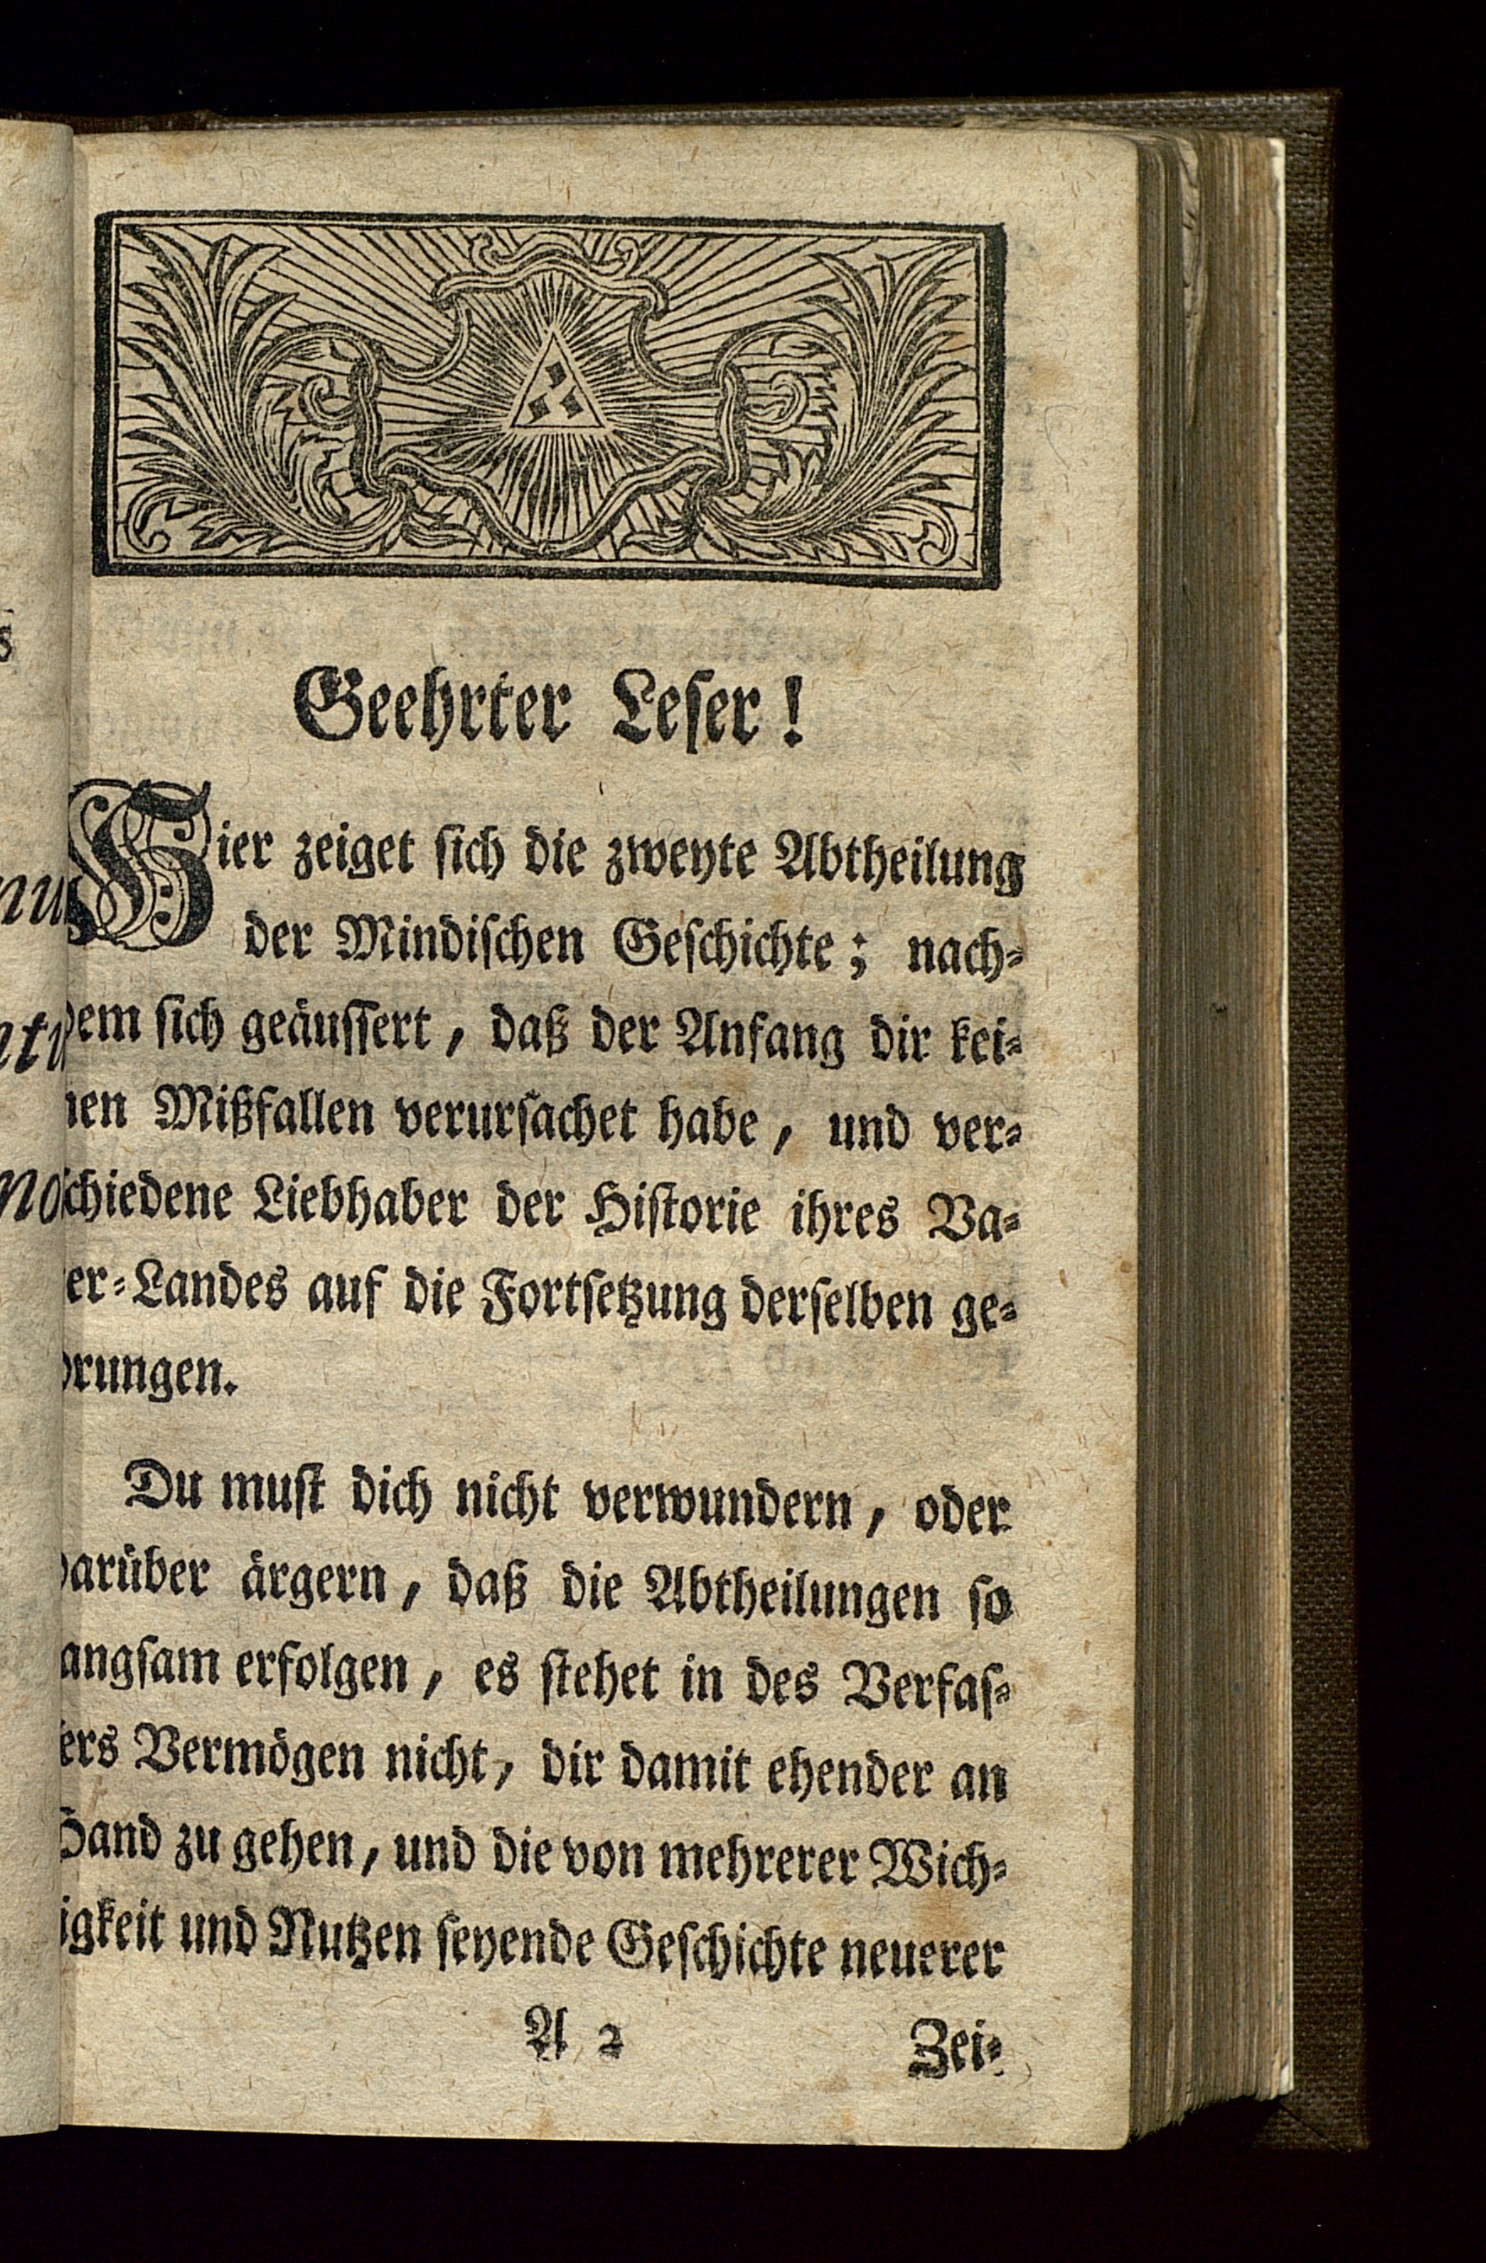 Geehrter Leser!
Hier zeiget sich die zweyte Abtheilung
der Mindischen Geschichte; nach-
dem sich geäussert, daß der Anfang dir kei-
nen Mißfallen verursachet habe, und ver-
schiedene Liebhaber der Historie ihres Va-
ter-Landes auf die Fortsetzung derselben ge-
drungen.
Du must dich nicht verwundern, oder
darüber ärgern, daß die Abtheilungen so
langsam erfolgen, es stehet in des Verfas-
sers Vermögen nicht, dir damit ehender an
Hand zu gehen, und die von mehrerer Wich-
tigkeit und Nutzen seyende Geschichte neuerer
A 2
Zei-